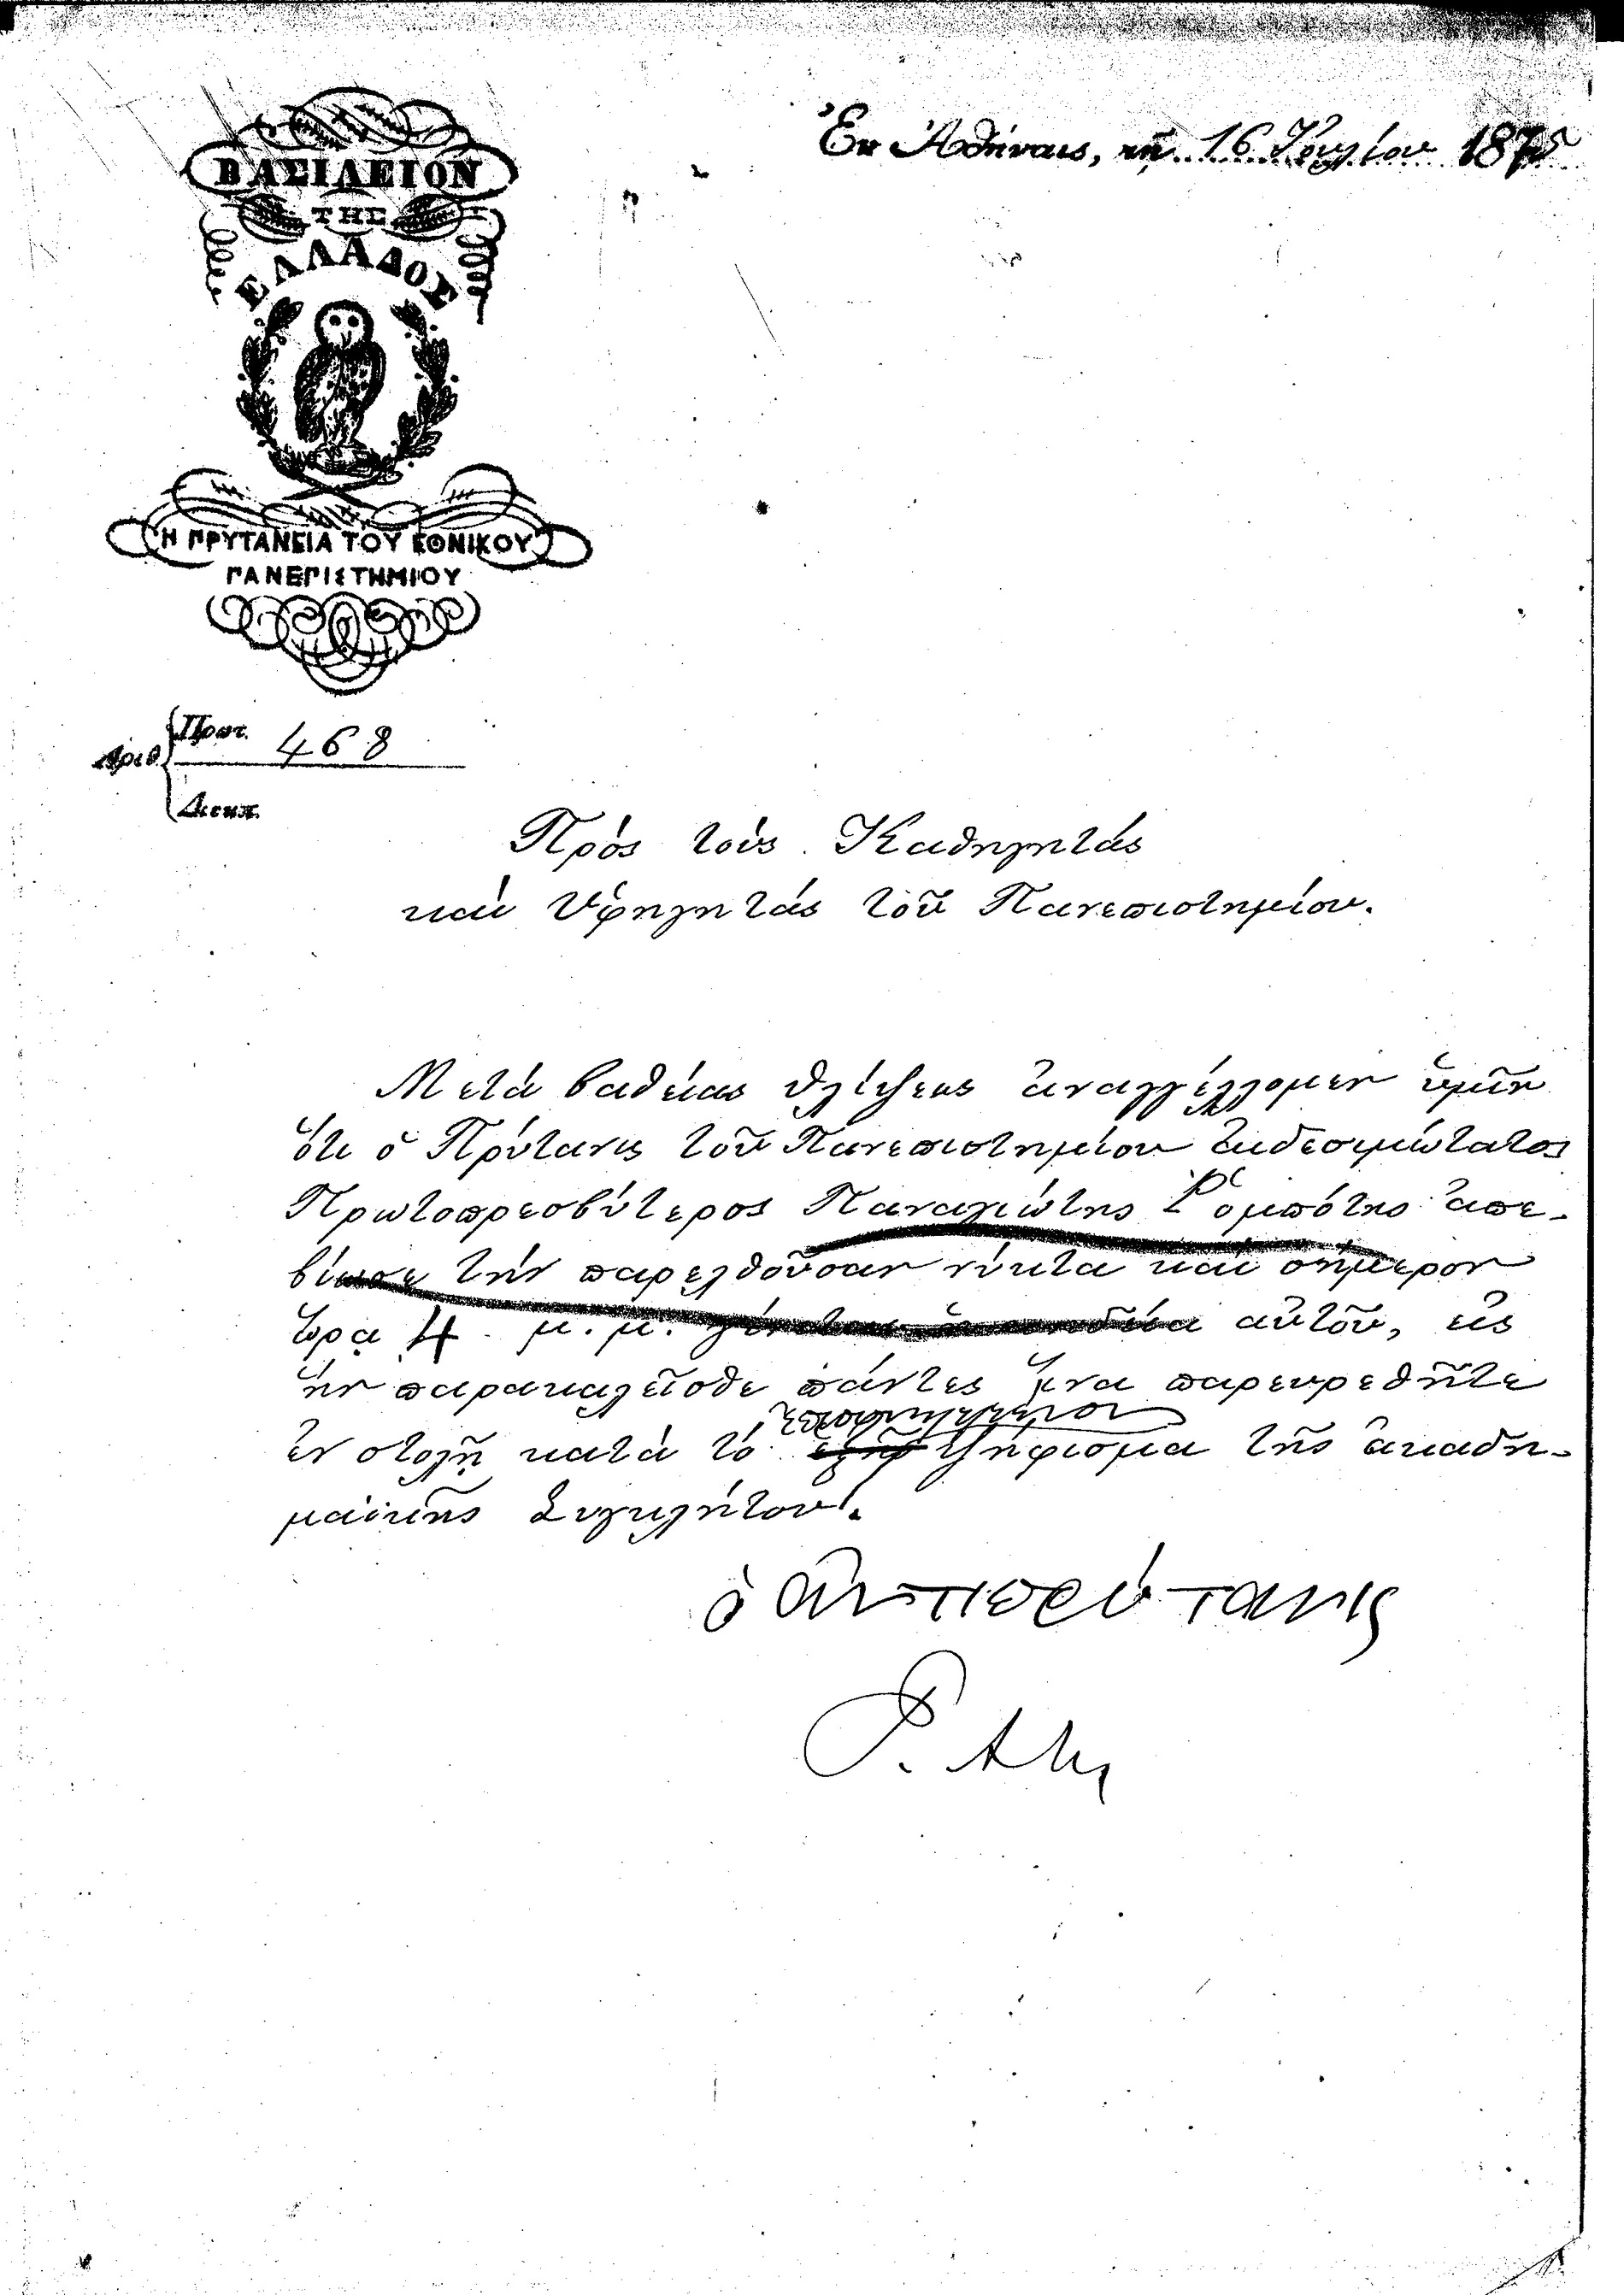 Ἐν Ἀθήναις, τῇ 16 Ἰουλίου 1875
ΒΑΣΙΛΕΙΟΝ
ΤΗΣ
ΕΛΛΑΔΟΣ
Η ΠΡΥΤΑΝΕΙΑ ΤΟΥ ΕΘΝΙΚΟΥ
ΠΑΝΕΠΙΣΤΗΜΙΟΥ
Ἀριθ. Πρωτ. 468
Διεκπ.
Πρὸς τοὺς Καθηγητὰς
καὶ Ὑφηγητὰς τοῦ Πανεπιστημίου.
Μετὰ βαθείας θλίψεως ἀναγγέλλομεν ὑμῖν
ὅτι ὁ Πρύτανις τοῦ Πανεπιστημίου αἰδεσιμώτατος
Πρωτοπρεσβύτερος Παναγιώτης Ῥομπότης ἀπε-
βίωσε τὴν παρελθοῦσαν νύκτα καὶ σήμερον
ὥρᾳ 4 μ. μ. γίνεται ἡ κηδεία αὐτοῦ, εἰς
ἣν παρακαλεῖσθε πάντες ἵνα παρευρεθῆτε
ἐν στολῇ κατὰ τὸ ψήφισμα τῆς ἀκαδη-
μαϊκῆς Συγκλήτου.
ὁ ἀντιπρύτανις